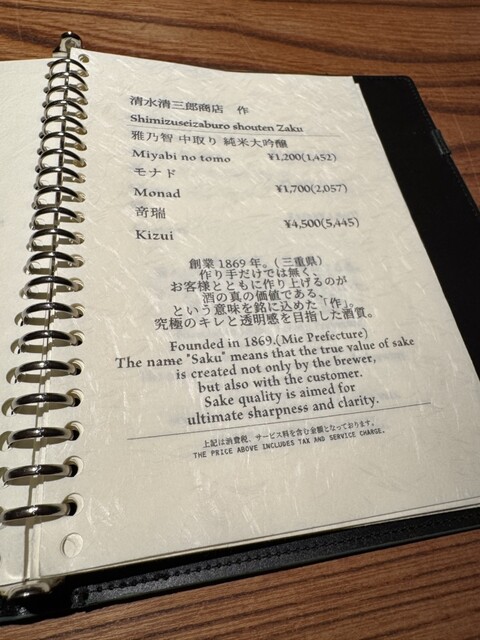 清水清三郎商店　作
Shimizuseizaburo shouten Zaku
雅乃智 中取り 純米大吟醸
Miyabi no tomo ¥1,200(1,452)
モナド
Monad ¥1,700(2,057)
奇瑞
Kizui ¥4,500(5,445)
創業 1869 年。（三重県）
作り手だけでは無く、
お客様とともに作り上げるのが
酒の真の価値である、
という意味を銘に込めた「作」。
究極のキレと透明感を目指した酒質。
Founded in 1869.(Mie Prefecture)
The name "Saku" means that the true value of sake
is created not only by the brewer,
but also with the customer.
Sake quality is aimed for
ultimate sharpness and clarity.
上記は消費税、サービス料を含む金額となっております。
THE PRICE ABOVE INCLUDES TAX AND SERVICE CHARGE.